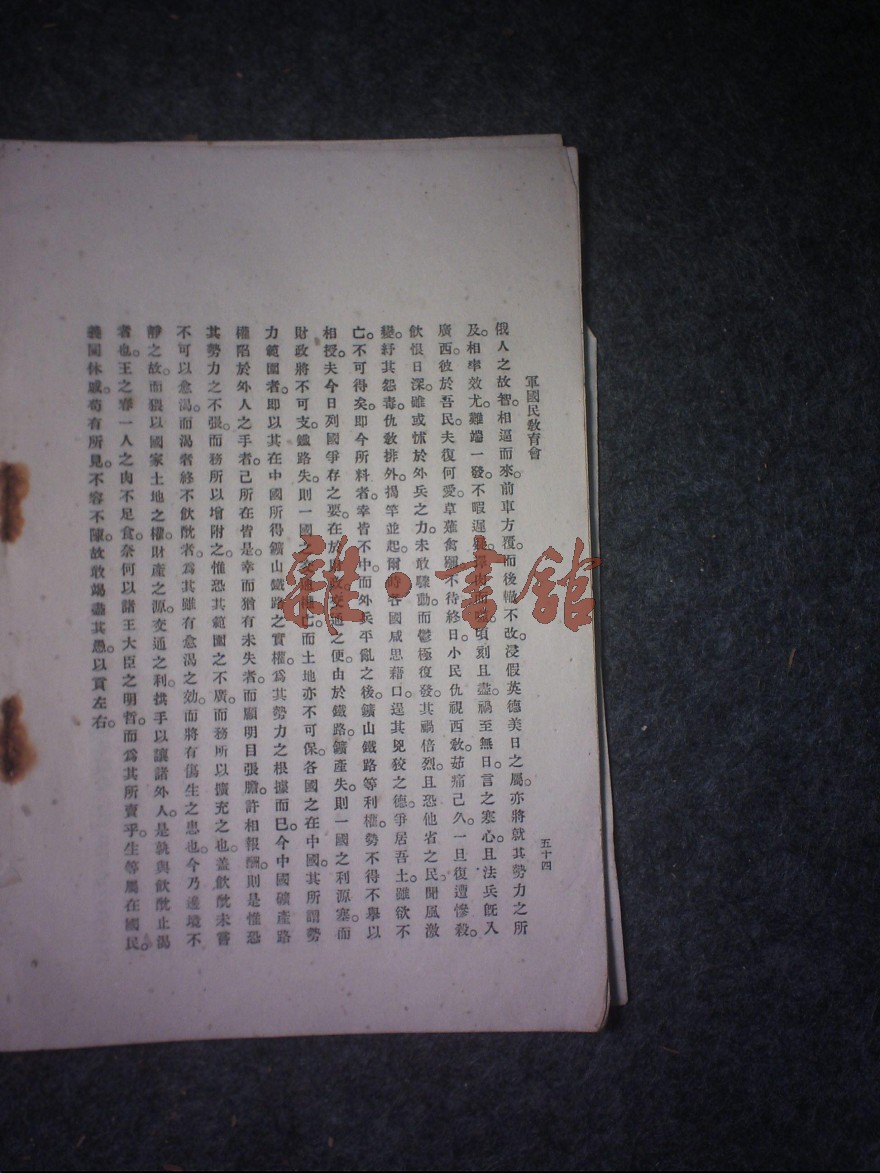 軍國民教育會
五十四
俄人之故智。相逼而來。前車方覆。而後轍不改。浸假英德美日之屬。亦將就其勢力之所
及。相率效尤。難端一發。不暇遑 頃刻且盡。禍至無日。言之寒心。且法兵既入
廣西。彼於吾民。夫復何愛。草薙禽獮。不待終日。小民仇視西敎。茹痛已久。一旦復遭慘殺。
飲恨日深。雖或怵於外兵之力。未敢驟動。而鬱極復發。其禍倍烈。且恐他省之民。聞風激
變。紓其怨毒。仇敎排外。揭竿並起。爾時各國咸思藉口。逞其兇狡之德。爭居吾土。雖欲不
亡。不可得矣。即今所料者。幸皆不中。而外兵平亂之後。鑛山鐵路等利權。勢不得不舉以
相授。夫今日列國爭存之要。在於財政交通之便。由於鐵路。鑛產失。則一國之利源塞。而
財政將不可支。鐵路失。則一國之交通機亡。而土地亦不可保。各國之在中國。其所謂勢
力範圍者。即以其在中國所得鑛山鐵路之實權。爲其勢力之根據而已。今中國礦產路
權陷於外人之手者。己所在皆是。幸而猶有未失者。而顧明目張膽。許相報酬。則是惟恐
其勢力之不張。而務所以增附之。惟恐其範圍之不廣。而務所以擴充之也。蓋飲酖未嘗
不可以愈渴。而渴者終不飲酖者。爲其雖有愈渴之効。而將有傷生之患也。今乃邊境不
靜之故。而猥以國家土地之權。財產之源。交通之利。拱手以讓諸外人。是孰與飲酖止渴
者也。王之春一人之肉不足食。奈何以諸王大臣之明哲。而爲其所賣乎。生等屬在國民。
義關休戚。苟有所見。不容不陳。故敢竭盡其愚。以貢左右。
雜·書館